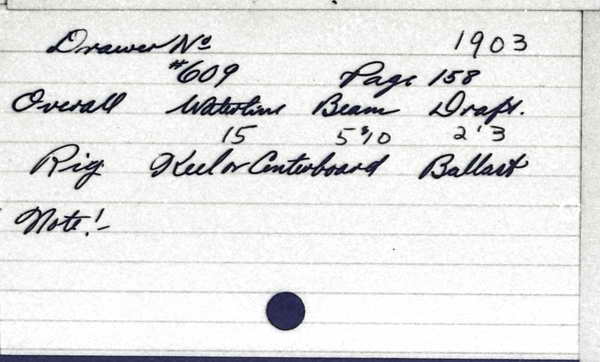 Drawer No 1903
#609 Page 158
Overall Waterline Beam Draft.
15 5'10 2'3
Rig Keel or Centerboard Ballast
Note!-